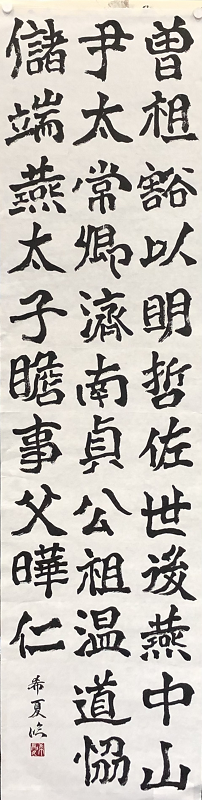 曽祖谿以明哲佐世後燕中山
尹太常卿濟南貞公祖温道恊
儲端燕太子瞻事父曄仁
希夏临